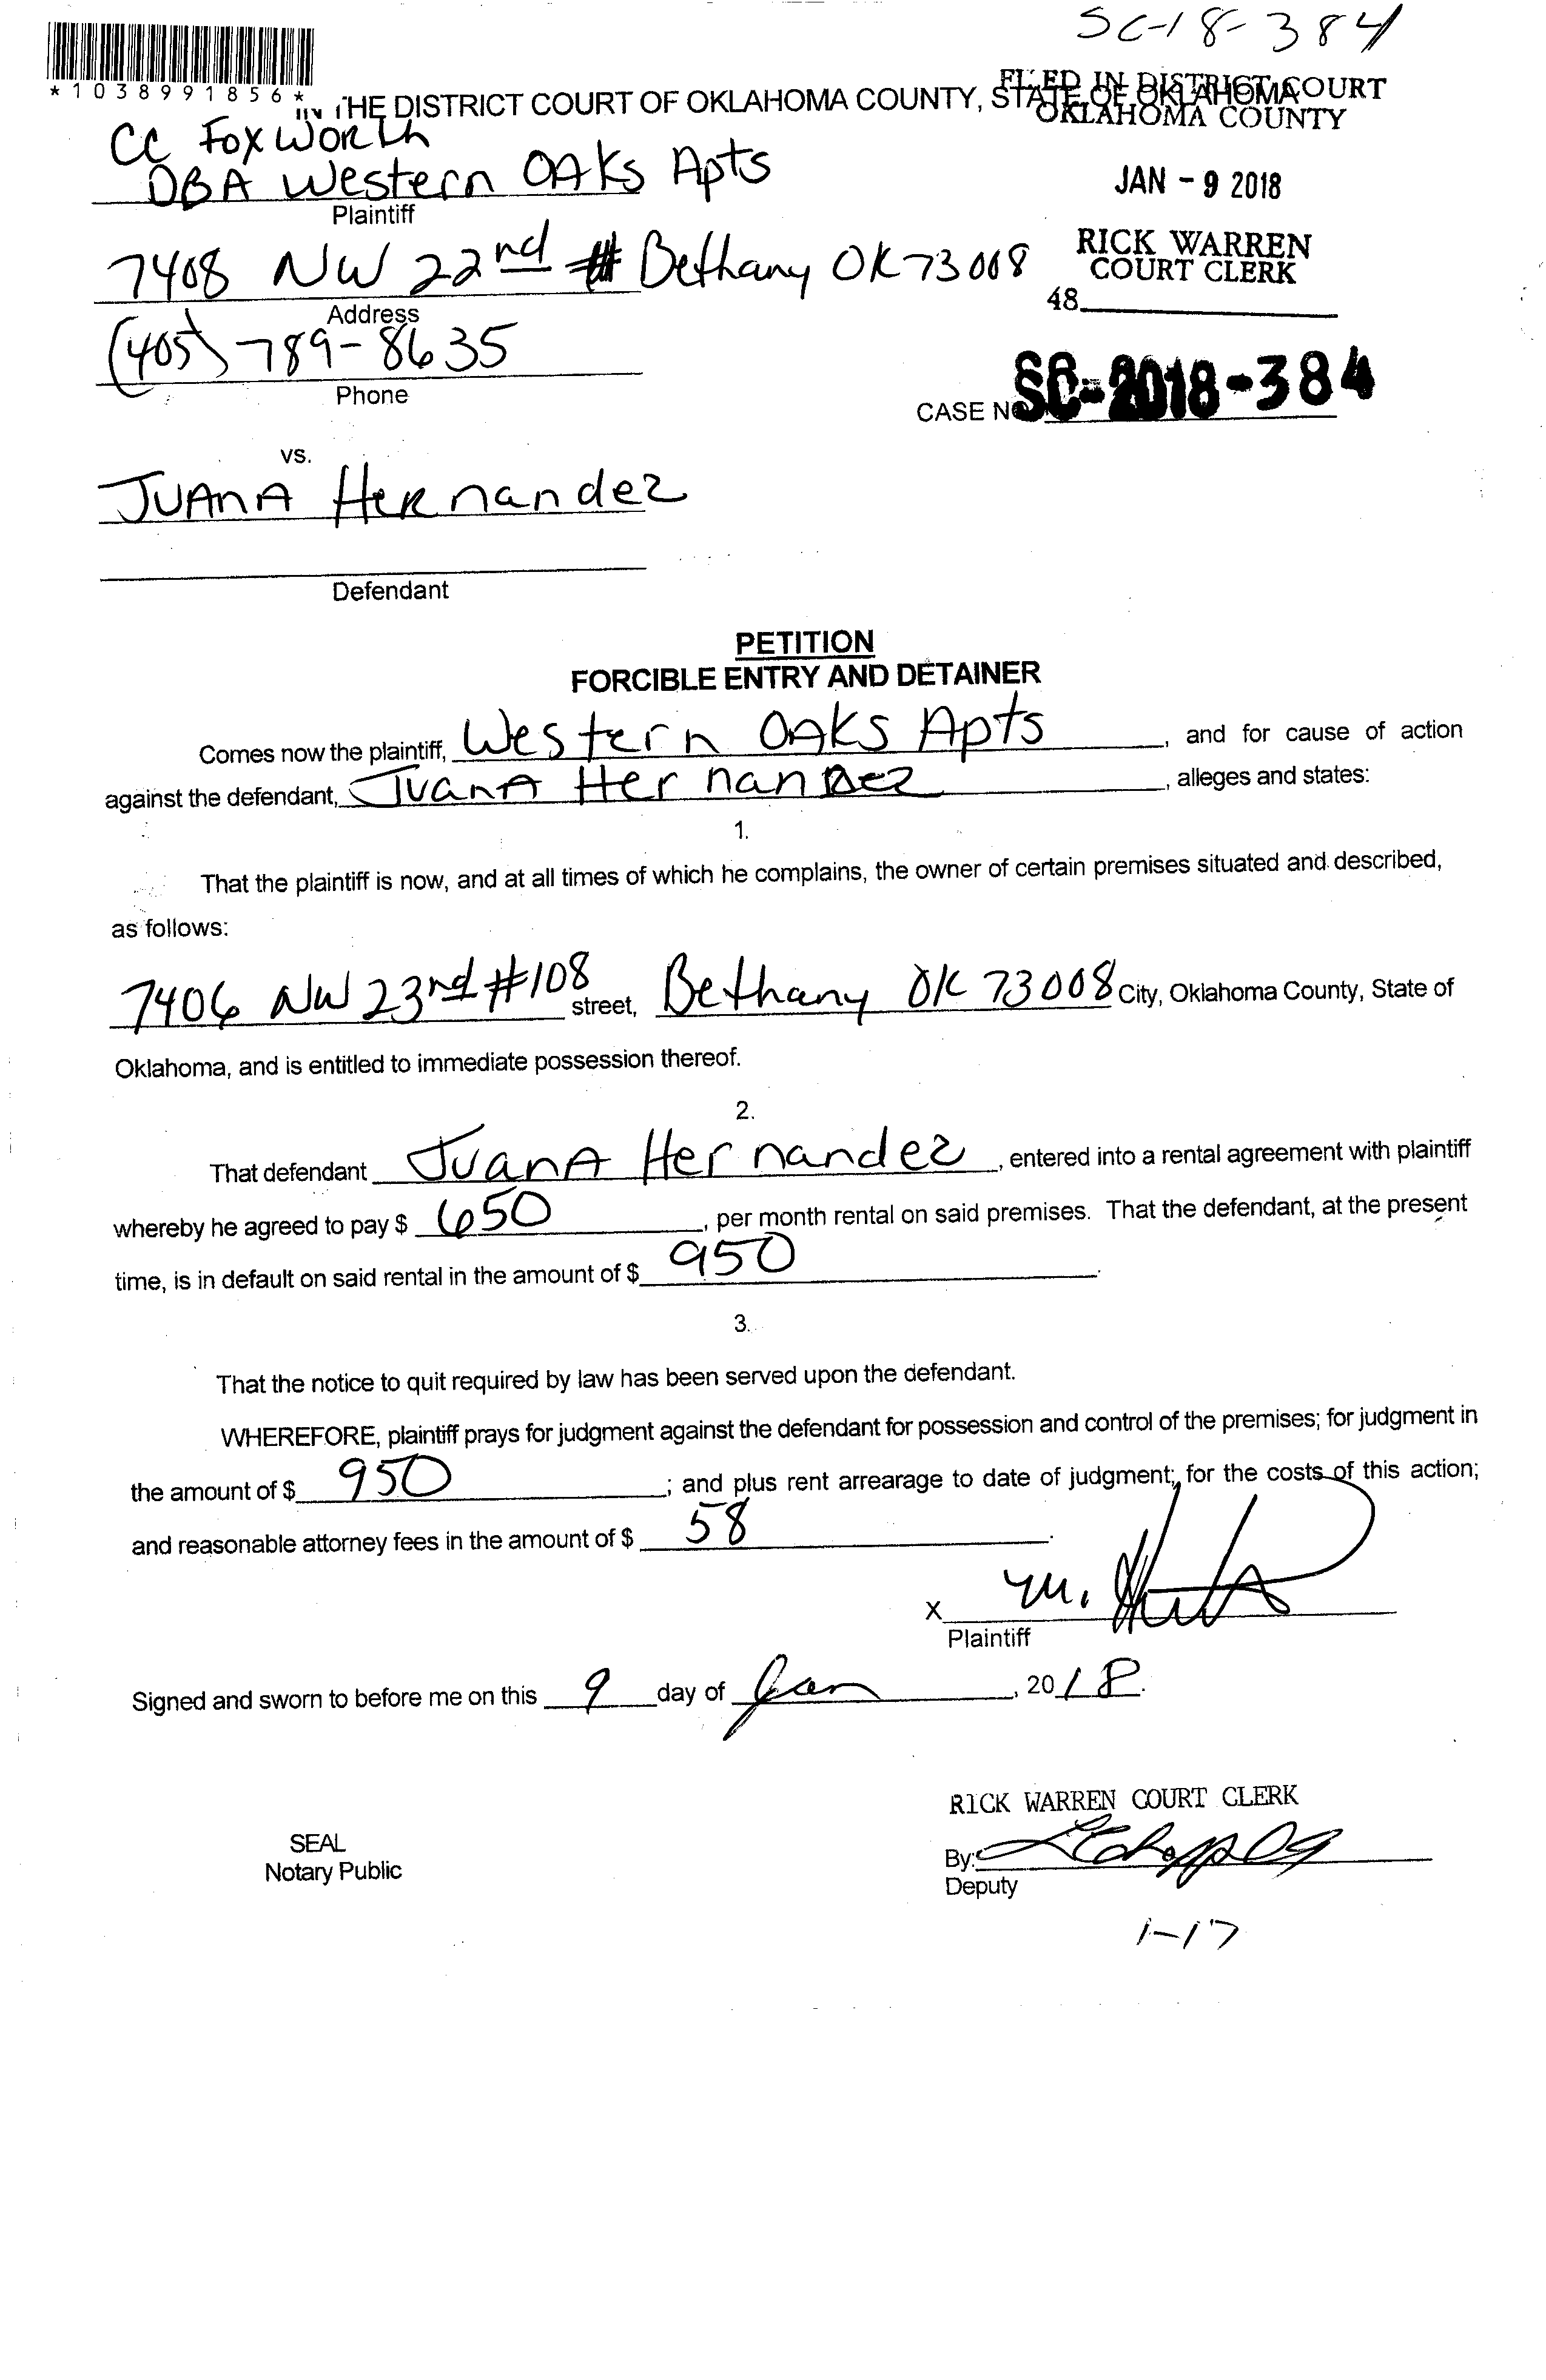 SC-18-384
*1038991856*
IN THE DISTRICT COURT OF OKLAHOMA COUNTY, STATE OF OKLAHOMA
FILED IN DISTRICT COURT
OKLAHOMA COUNTY
CC FoxWorth
DBA Western OAKs Apts
Plaintiff
JAN - 9 2018
7408 NW 22nd # Bethany OK 73008
Address
RICK WARREN
COURT CLERK
48
(405) 789-8635
Phone
CASE NO SC-2018-384
vs.
JUAnA HeRnandez
Defendant
PETITION
FORCIBLE ENTRY AND DETAINER
Comes now the plaintiff, Western OAKS Apts, and for cause of action
against the defendant, JuanA HernanDez, alleges and states:
1.
That the plaintiff is now, and at all times of which he complains, the owner of certain premises situated and described,
as follows:
7406 NW 23rd #108 street, Bethany OK 73008 City, Oklahoma County, State of
Oklahoma, and is entitled to immediate possession thereof.
2.
That defendant JuanA Hernandez, entered into a rental agreement with plaintiff
whereby he agreed to pay $ 650, per month rental on said premises. That the defendant, at the present
time, is in default on said rental in the amount of $ 950.
3.
That the notice to quit required by law has been served upon the defendant.
WHEREFORE, plaintiff prays for judgment against the defendant for possession and control of the premises; for judgment in
the amount of $ 950; and plus rent arrearage to date of judgment; for the costs of this action;
and reasonable attorney fees in the amount of $ 58.
X M.
Plaintiff
Signed and sworn to before me on this 9 day of Jan, 2018.
RICK WARREN COURT CLERK
SEAL
Notary Public
By:
Deputy
1-17